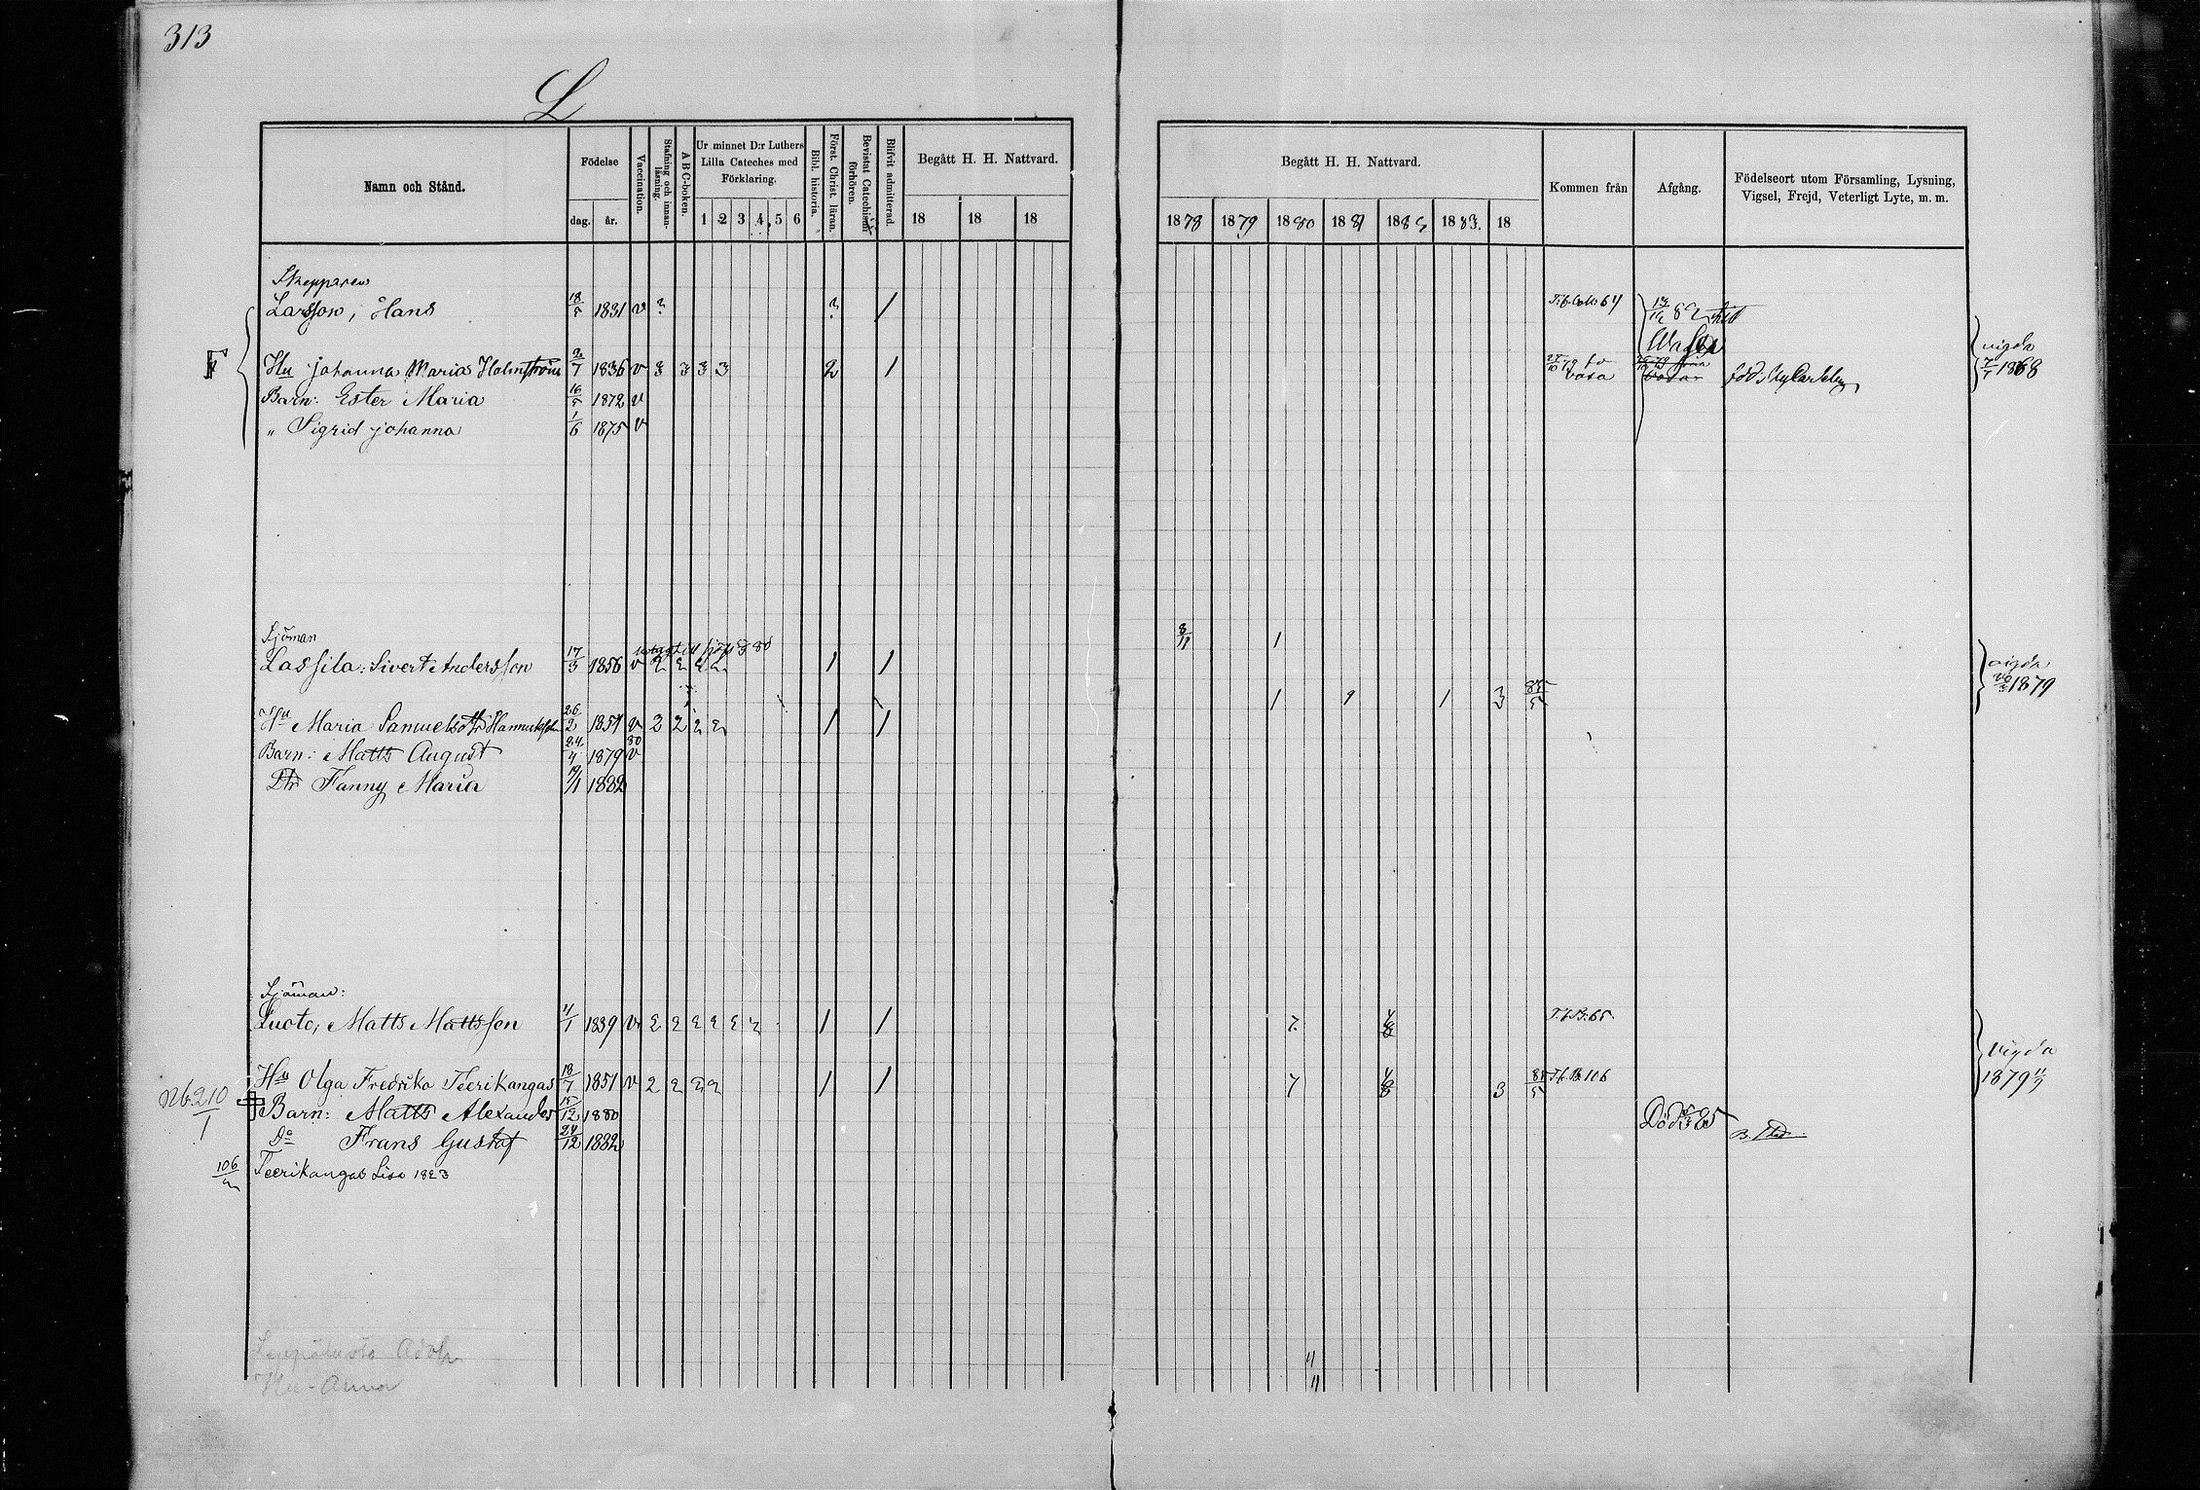 313
L
Namn och Stånd.
Födelse
dag. år.
Vaccination.
Stafning och innanläsning.
A B C-boken.
Ur minnet D:r Luthers Lilla Cateches med Förklaring.
1 2 3 4 5 6
Bibl. historia.
Först. Christ. läran.
Bevistat Catechismi förhören.
Blifvit admitterad.
Begått H. H. Nattvard.
18 18 18
Begått H. H. Nattvard.
1878 1879 1880 1881 1882 1883. 18
Kommen från
Afgång.
Födelseort utom Församling, Lysning, Vigsel, Frejd, Veterligt Lyte, m. m.
Skepparen
Larsson, Hans 18/5 1831 v 3 3 / T.f. 64 82
F Hu Johanna Maria Holmström 2/7 1836 v 3 3 3 3 2 1 Vasa född i Nykarleby vigda 1868
Barn: Ester Maria 16/5 1872 v
" Sigrid Johanna 1/6 1875 v
Sjöman 8/11 1
Lassila: Sivert Andersson 17/3 1856 v 2 2 2 2 1 1 vigda 1879
1 1 1 3 85/5
Hu Maria Samuelsdtr Hannuksela 26/2 1857 v 2 2 2 2 1 1
Barn: Matts August 24/4 1879 v 80
Dtr Fanny Maria 19/1 1882
Sjöman:
Luoto, Matts Mattsson 11/1 1839 v 2 2 2 2 2 2 1 1 7. T.f. B. 65
Hu Olga Fredrika Teerikangas 18/7 1851 v 2 2 2 2 1 1 7 3 85/5 T.f. B. 106 vigda 1879
Nb. 210/1 Barn: Matts Alexander 15/12 1880 Död 85
Do Frans Gustaf 24/12 1882
106 Teerikangas Lisa 1823
Adolf
Hu - Anna